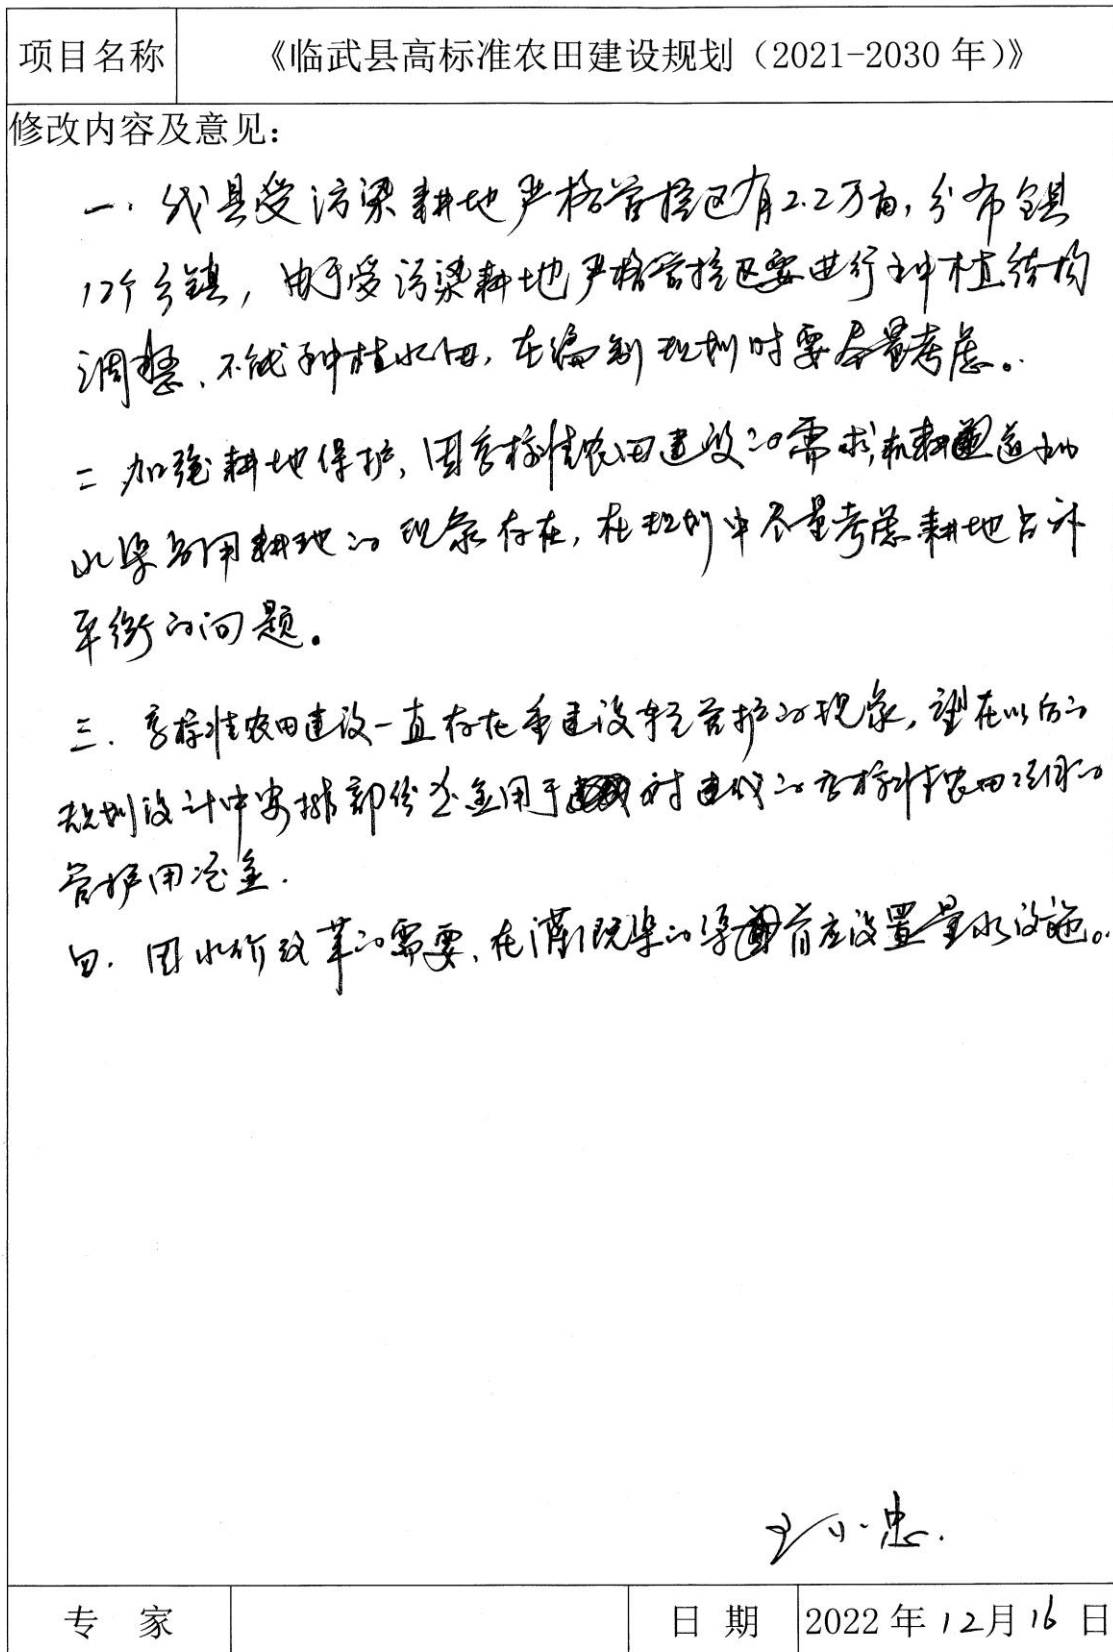 项目名称 《临武县高标准农田建设规划（2021-2030 年）》
修改内容及意见：
一. 我县受污染耕地严格管控区有2.2万亩，分布全县
12个乡镇，由于受污染耕地严格管控区要进行种植结构
调整、不能种植水稻，在编制规划时要尽量考虑。
二 加强耕地保护，因高标准农田建设的需求，机耕道和
水渠占用耕地的现象存在，在规划中尽量考虑耕地占补
平衡的问题。
三. 高标准农田建设一直存在重建设轻管护的现象，望在以后的
规划设计中安排部份资金用于对建成的高标准农田项目的
管护用资金.
四. 因水价改革的需要、在灌溉渠的渠首应设置量水设施。
王小忠.
专 家 日 期 2022 年 12 月 16 日